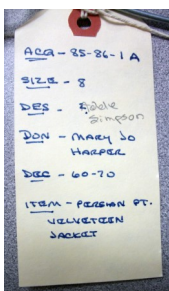 ACQ - 85-86-1 A
SIZE - 8
DES - Eddie
Simpson
DON - MARY JO
HARPER
DEC - 60-70
ITEM - PERSIAN PT.
VELVETEEN
JACKET